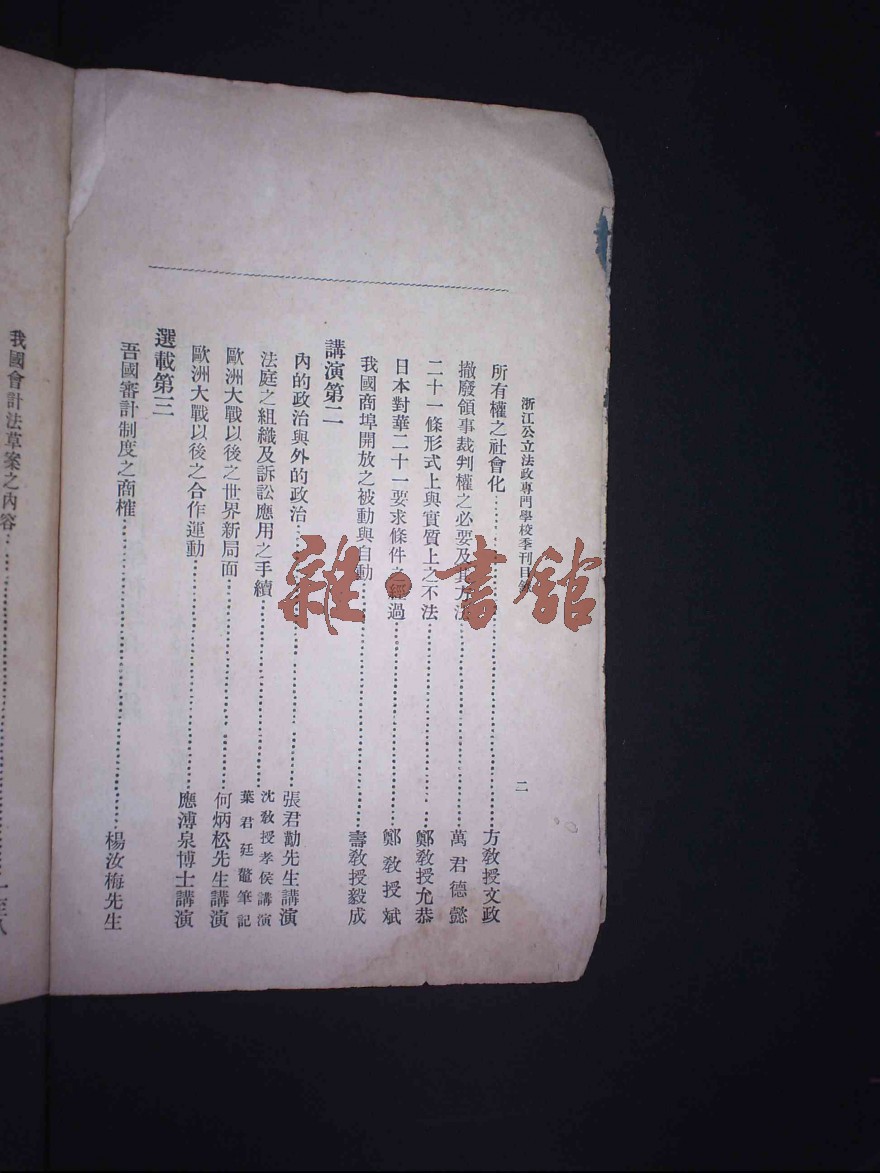 浙江公立法政專門學校季刊目錄
二
所有權之社會化……方教授文政
撤廢領事裁判權之必要及其方法……萬君德懿
二十一條形式上與實質上之不法……鄭教授允恭
日本對華二十一要求條件之經過……鄭教授斌
我國商埠開放之被動與自動……壽教授毅成
講演第二
內的政治與外的政治……張君勱先生講演
法庭之組織及訴訟應用之手續……沈教授孝侯講演
葉君廷鼇筆記
歐洲大戰以後之世界新局面……何炳松先生講演
歐洲大戰以後之合作運動……應溥泉博士講演
選載第三
吾國審計制度之商榷……楊汝梅先生
我國會計法草案之內容……
雜·書館